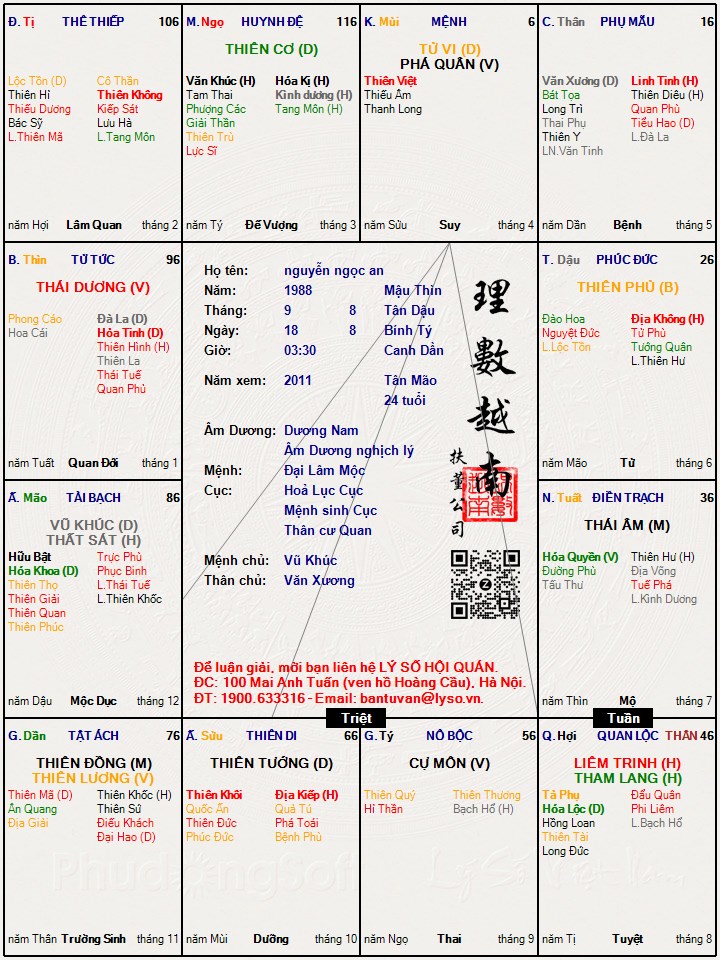 Đ. Tị THÊ THIẾP 106
Lộc Tồn (D) Cô Thần
Thiên Hỉ Thiên Không
Thiếu Dương Kiếp Sát
Bác Sỹ Lưu Hà
L.Thiên Mã L.Tang Môn
năm Hợi Lâm Quan tháng 2
M. Ngọ HUYNH ĐỆ 116
THIÊN CƠ (D)
Văn Khúc (H) Hóa Kị (H)
Tam Thai Kình dương (H)
Phượng Các Tang Môn (H)
Giải Thần
Thiên Trù
Lực Sĩ
năm Tý Đế Vượng tháng 3
K. Mùi MỆNH 6
TỬ VI (D)
PHÁ QUÂN (V)
Thiên Việt
Thiếu Âm
Thanh Long
năm Sửu Suy tháng 4
C. Thân PHỤ MẪU 16
Văn Xương (D) Linh Tinh (H)
Bát Tọa Thiên Diêu (H)
Long Trì Quan Phù
Thai Phụ Tiểu Hao (D)
Thiên Y L.Đà La
LN.Văn Tinh
năm Dần Bệnh tháng 5
B. Thìn TỬ TỨC 96
THÁI DƯƠNG (V)
Phong Cáo Đà La (D)
Hoa Cái Hỏa Tinh (D)
Thiên Hình (H)
Thiên La
Thái Tuế
Quan Phủ
năm Tuất Quan Đới tháng 1
Họ tên: nguyễn ngọc an
Năm: 1988 Mậu Thìn
Tháng: 9 8 Tân Dậu
Ngày: 18 8 Bính Tý
Giờ: 03:30 Canh Dần
Năm xem: 2011 Tân Mão
24 tuổi
Âm Dương: Dương Nam
Âm Dương nghịch lý
Mệnh: Đại Lâm Mộc
Cục: Hoả Lục Cục
Mệnh sinh Cục
Thân cư Quan
Mệnh chủ: Vũ Khúc
Thân chủ: Văn Xương
理數越南
扶董公司
Để luận giải, mời bạn liên hệ LÝ SỐ HỘI QUÁN.
ĐC: 100 Mai Anh Tuấn (ven hồ Hoàng Cầu), Hà Nội.
ĐT: 1900.633316 - Email: bantuvan@lyso.vn.
T. Dậu PHÚC ĐỨC 26
THIÊN PHỦ (B)
Đào Hoa Địa Không (H)
Nguyệt Đức Tử Phù
L.Lộc Tồn Tướng Quân
L.Thiên Hư
năm Mão Tử tháng 6
Ấ. Mão TÀI BẠCH 86
VŨ KHÚC (D)
THẤT SÁT (H)
Hữu Bật Trực Phù
Hóa Khoa (D) Phục Binh
Thiên Thọ L.Thái Tuế
Thiên Giải L.Thiên Khốc
Thiên Quan
Thiên Phúc
năm Dậu Mộc Dục tháng 12
N. Tuất ĐIỀN TRẠCH 36
THÁI ÂM (M)
Hóa Quyền (V) Thiên Hư (H)
Đường Phù Địa Võng
Tấu Thư Tuế Phá
L.Kình Dương
năm Thìn Mộ tháng 7
Triệt Tuần
G. Dần TẬT ÁCH 76
THIÊN ĐỒNG (M)
THIÊN LƯƠNG (V)
Thiên Mã (D) Thiên Khốc (H)
Ân Quang Thiên Sứ
Địa Giải Điếu Khách
Đại Hao (D)
năm Thân Trường Sinh tháng 11
Ấ. Sửu THIÊN DI 66
THIÊN TƯỚNG (D)
Thiên Khôi Địa Kiếp (H)
Quốc Ấn Quả Tú
Thiên Đức Phá Toái
Phúc Đức Bệnh Phù
năm Mùi Dưỡng tháng 10
G. Tý NÔ BỘC 56
CỰ MÔN (V)
Thiên Quý Thiên Thương
Hỉ Thần Bạch Hổ (H)
năm Ngọ Thai tháng 9
Q. Hợi QUAN LỘC THÂN 46
LIÊM TRINH (H)
THAM LANG (H)
Tả Phụ Đẩu Quân
Hóa Lộc (D) Phi Liêm
Hồng Loan L.Bạch Hổ
Thiên Tài
Long Đức
năm Tị Tuyệt tháng 8